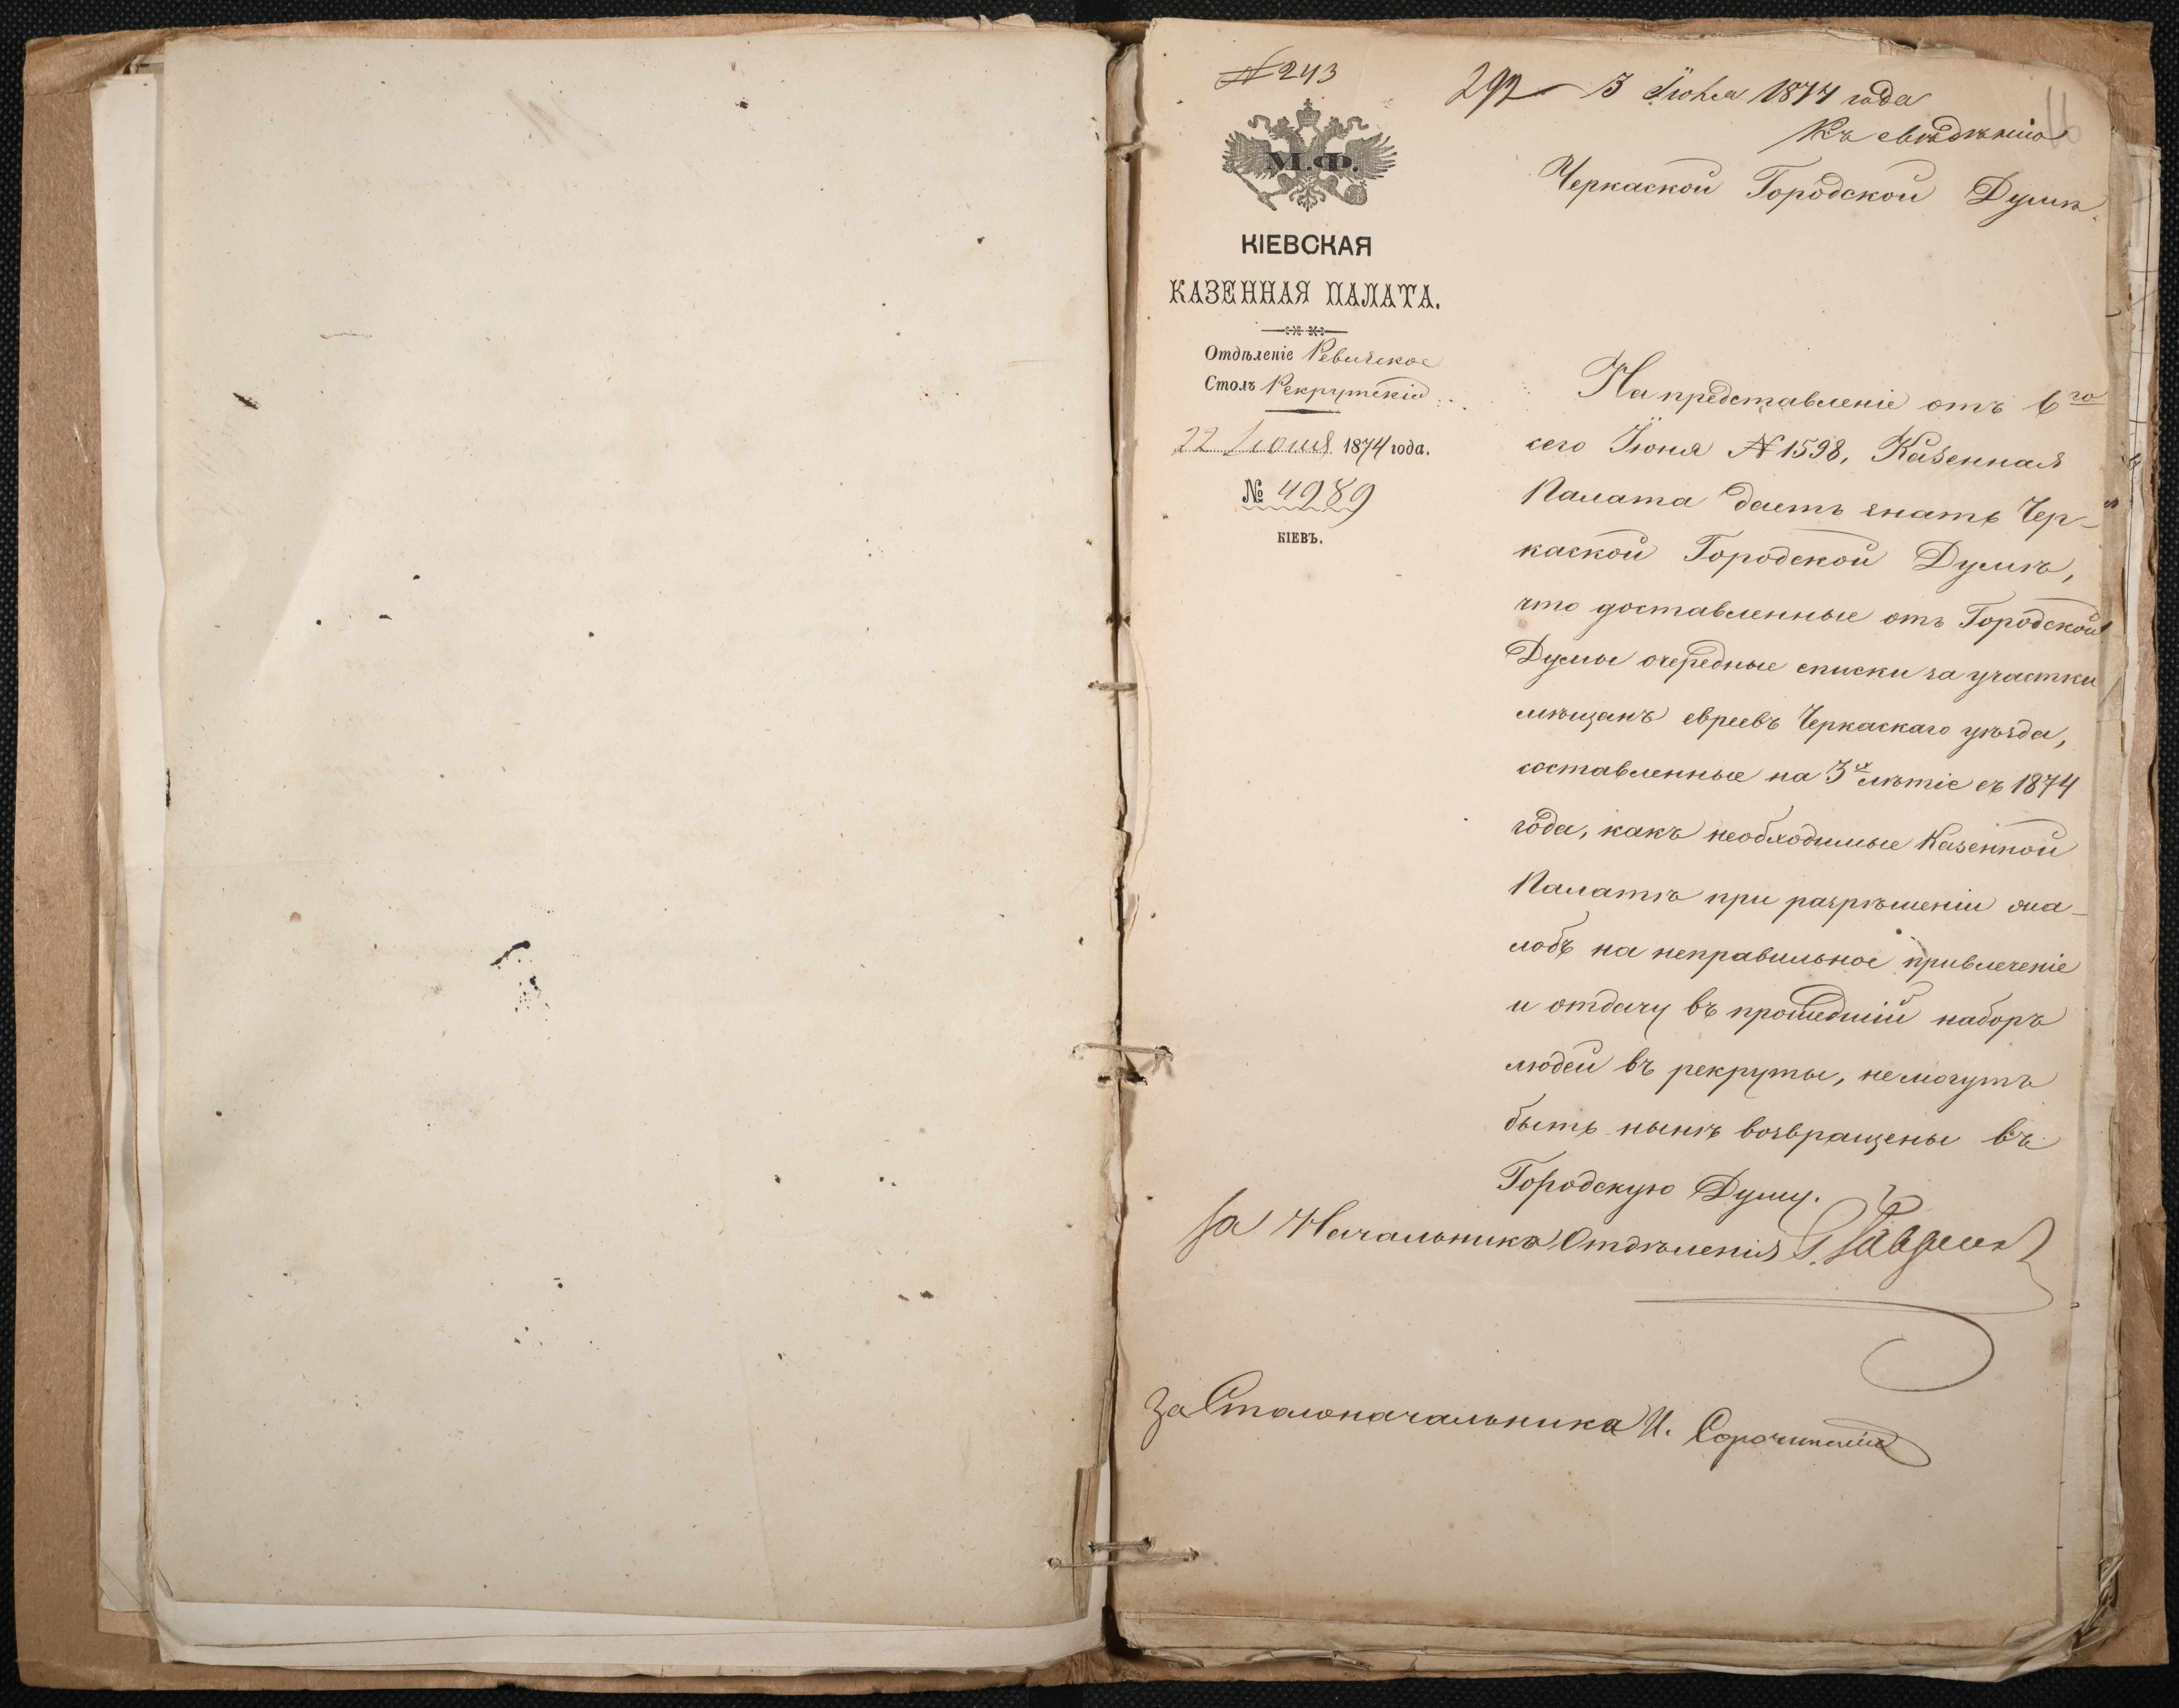 № 243
292 3 Июля 1874 года
Къ свѣдѣнію
М.Ф.
Черкаской Городской Думѣ.
КІЕВСКАЯ
КАЗЕННАЯ ПАЛАТА.
Отдѣленіе Ревизское
Столъ Рекрутскій
22 Іюня 1874 года.
№ 4989
КІЕВЪ.
На представленіе отъ 6го
сего Іюня № 1598, Казенная
Палата даетъ знать Чер-
каской Городской Думѣ,
что доставленные отъ Городской
Думы очередные списки за участки
мѣщанъ евреевъ Черкаскаго уѣзда,
составленные на 3хлѣтіе съ 1874
года, какъ необходимые Казенной
Палатѣ при разрѣшеніи жа-
лобъ на неправильное привлеченіе
и отдачу въ прошедшій наборъ
людей въ рекруты, не могутъ
быть нынѣ возвращены въ
Городскую Думу.
За Начальника Отдѣленія
За Столоначальника И. Сорочинскій